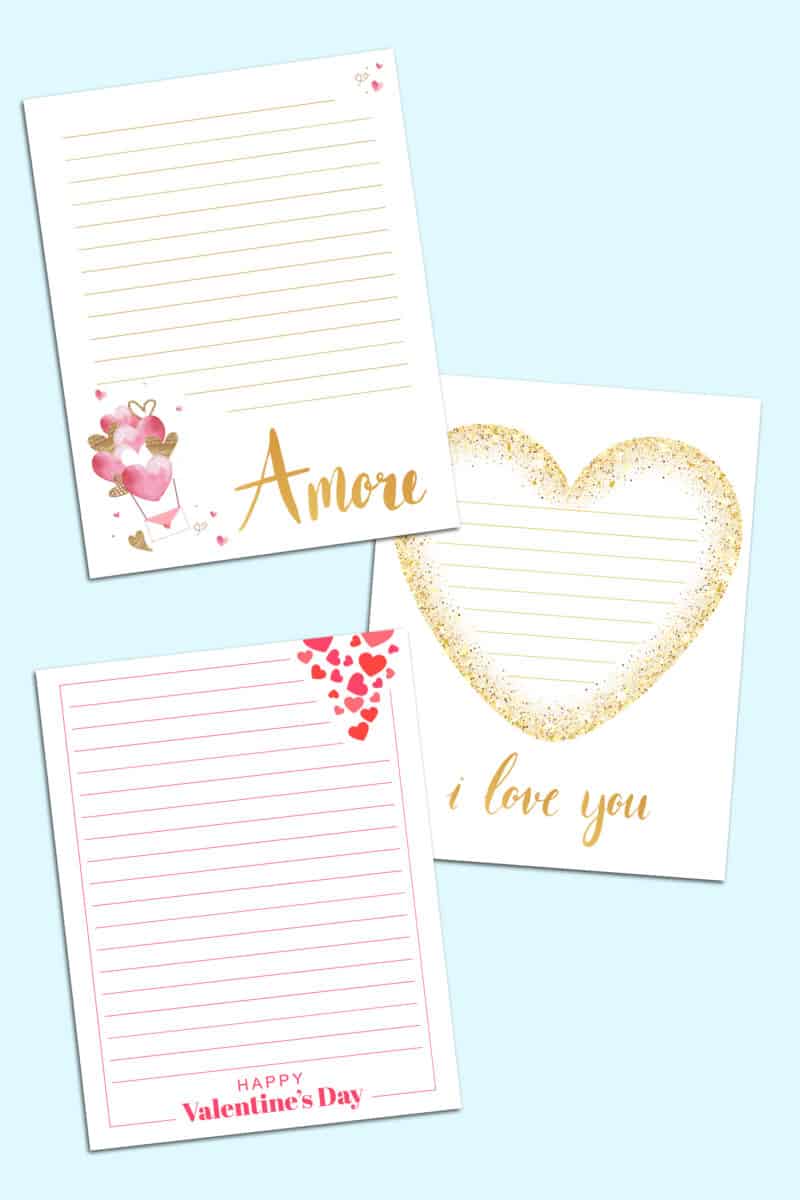 Amore
i love you
HAPPY
Valentine's Day